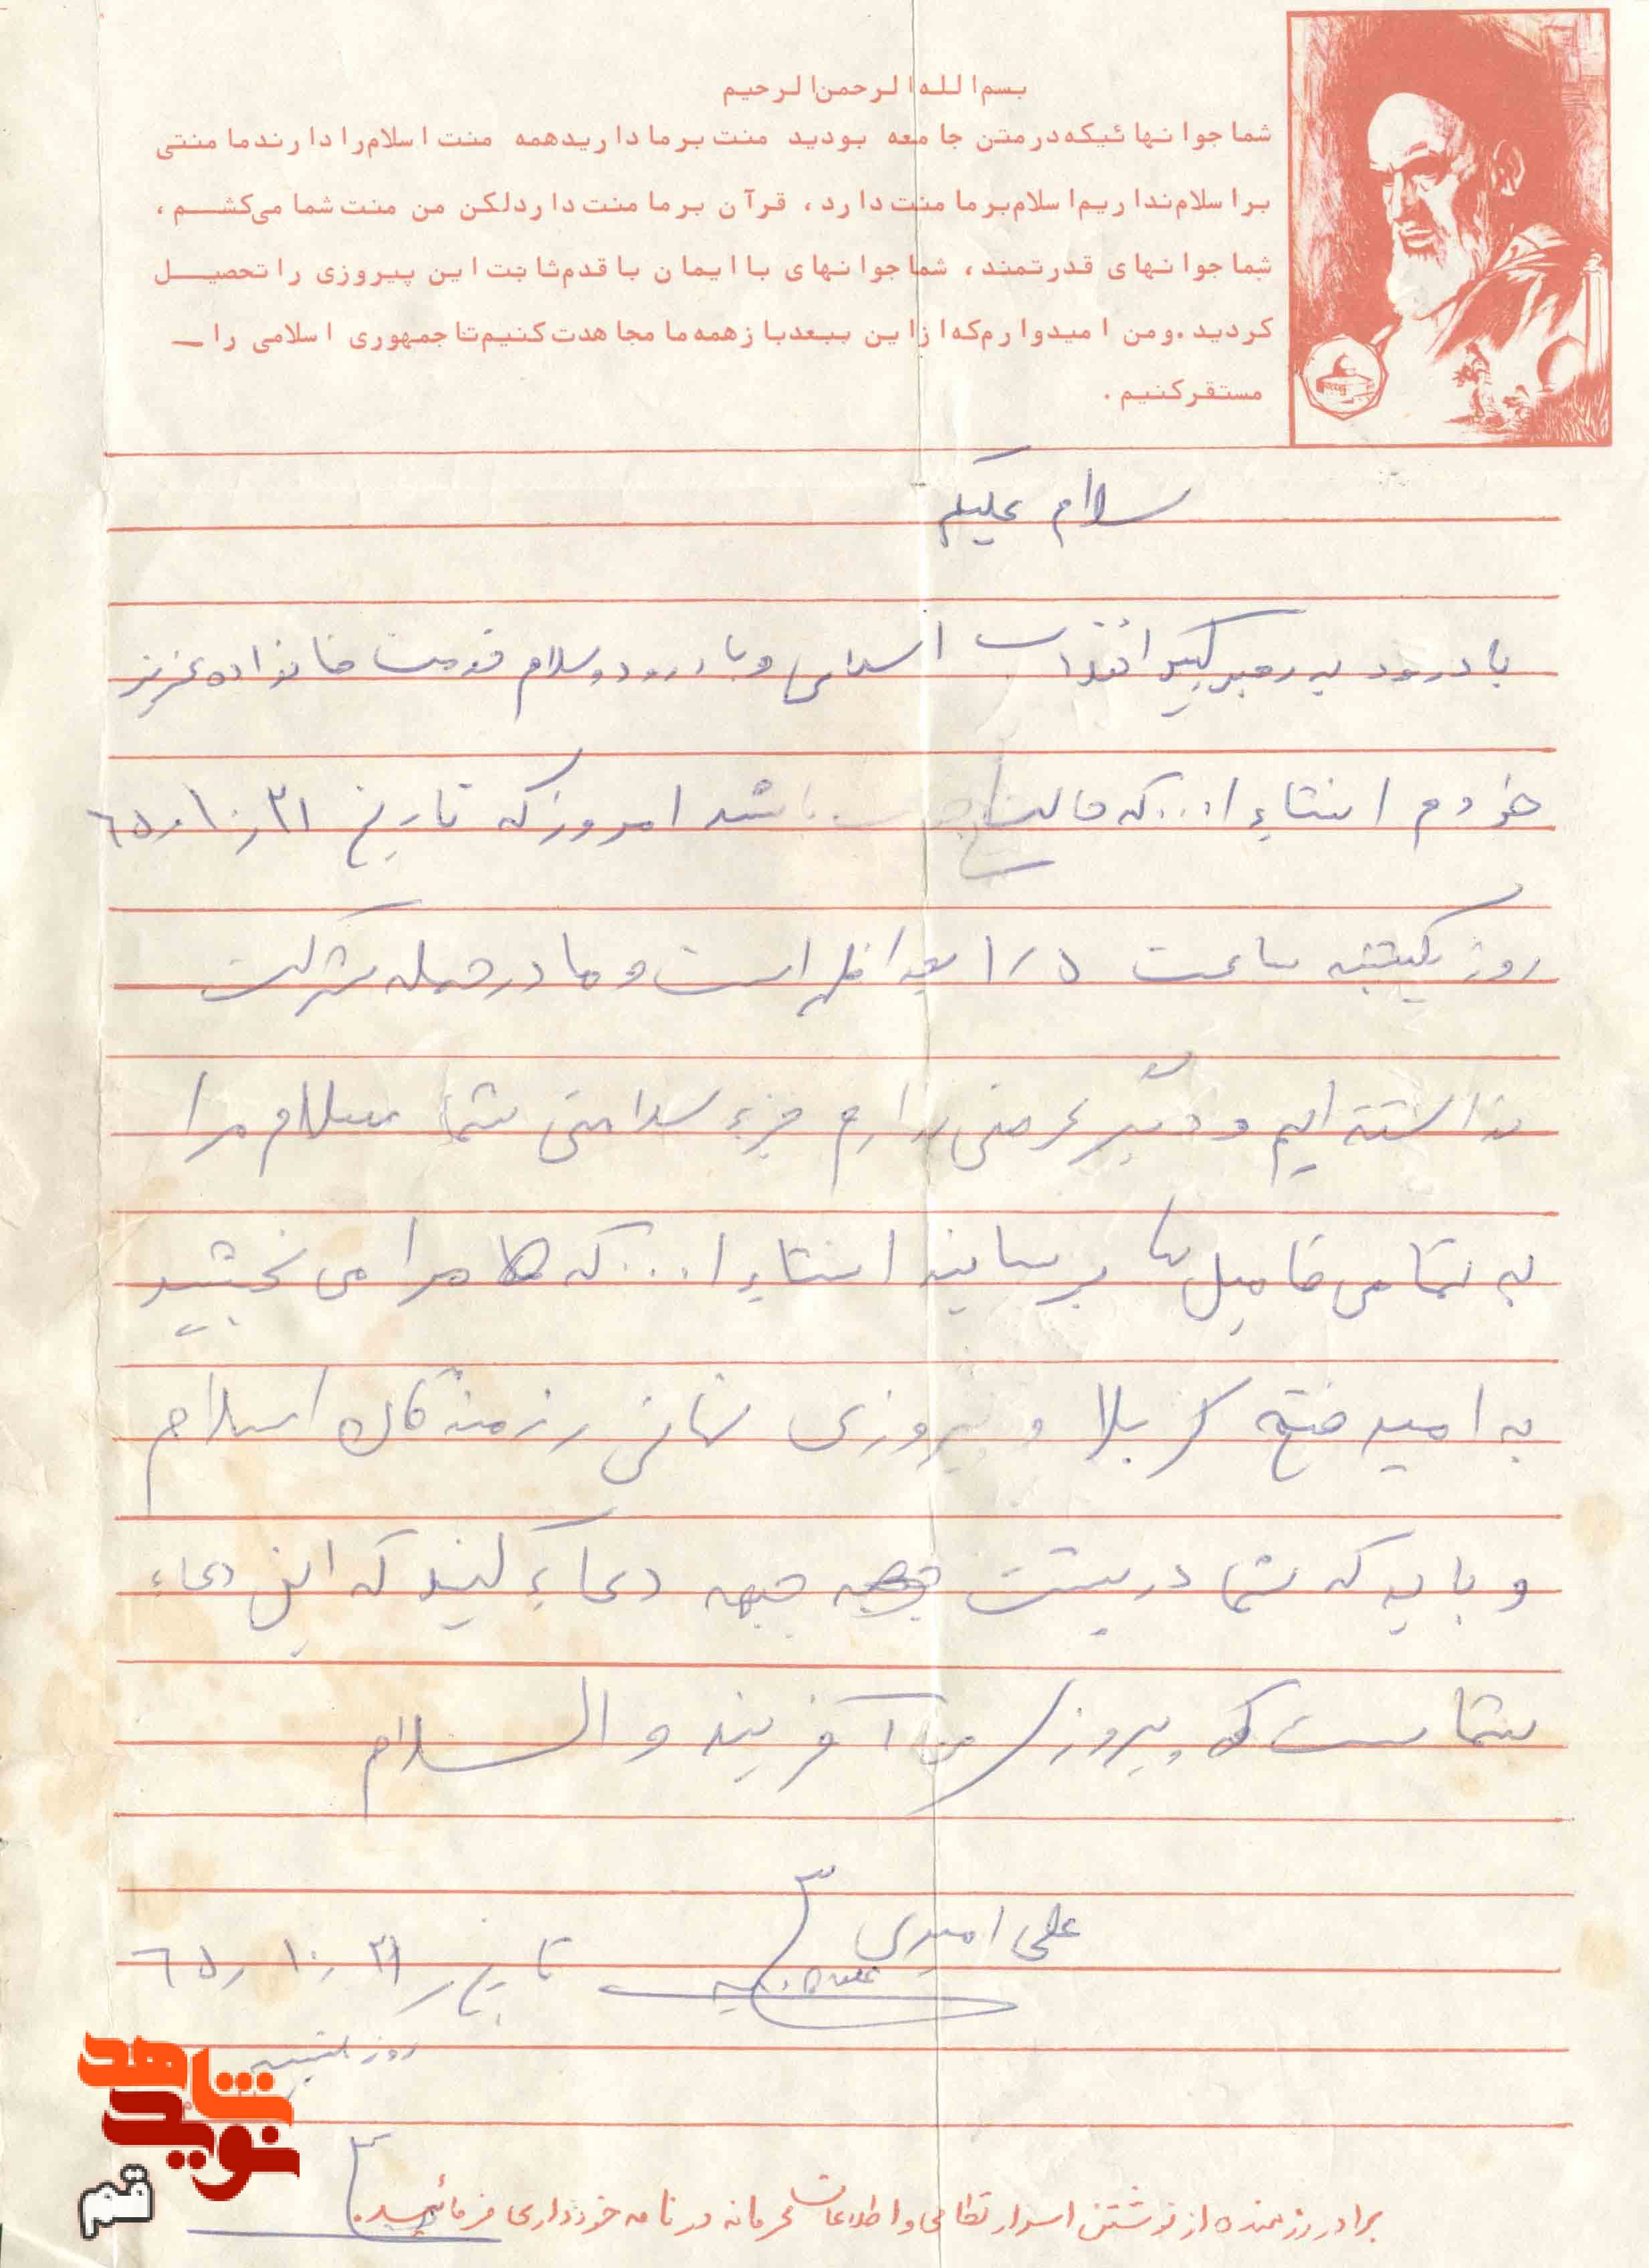 بسم الله الرحمن الرحیم
شما جوانهائیکه در متن جامعه بودید منت بر ما دارید همه منت اسلام را دارند ما منتی
بر اسلام نداریم اسلام بر ما منت دارد، قرآن بر ما منت دارد لکن من منت شما می‌کشم،
شما جوانهای قدرتمند، شما جوانهای با ایمان با قدم ثابت این پیروزی را تحصیل
کردید. و من امیدوارم که از این ببعد باز همه ما مجاهدت کنیم تا جمهوری اسلامی را —
مستقر کنیم.
سلام علیکم
با درود به رهبر کبیر انقلاب اسلامی و با درود و سلام خدمت خانواده عزیز
خودم انشاء ا... که حالتان باشد امروز که تاریخ ۲۱ ر ۱۰ ر ۶۵
روز یکشنبه ساعت ۱/۵ بعد از ظهر است و ما در حمله شرکت
نداشته ایم و دیگر عرضی ندارم جزء سلامتی شما سلام مرا
به تمامی فامیل ها برسانید انشاء ا... که مرا می بخشید
به امید فتح کربلا و پیروزی نهائی رزمندگان اسلام
و باید که شما در پشت جبهه دعاء کنید که این دعاء
شماست که پیروزی می آفریند والسلام
علی امیری
تاریخ ۲۱ ر ۱۰ ر ۶۵
روز یکشنبه
برادر رزمنده از نوشتن اسرار نظامی و اطلاعات محرمانه در نامه خودداری فرمائید.
شاهد
نوید
قم